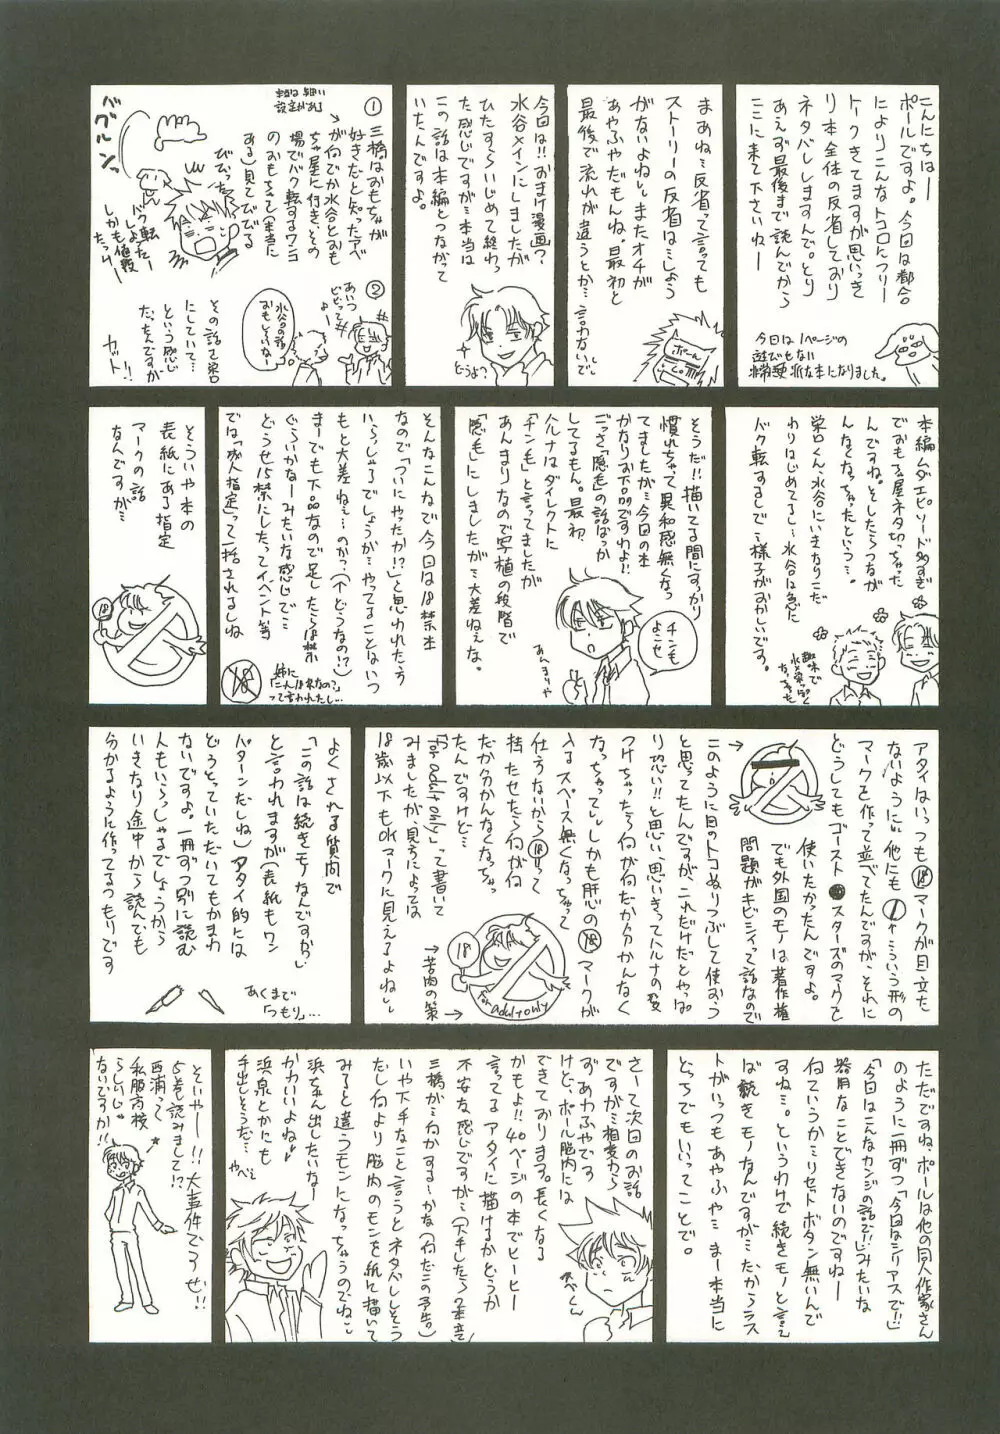 こんにちはー
ポールですよ。今回は都合
によりこんなトコロにフリー
トークきてますが思いっき
り本全体の反省しており
ネタバレしますんで。とり
あえず最後まで読んでから
ここに来て下さいねー
今回は1ページの
遊びもない
硬派な本になりました。
まあね…反省って言っても
ストーリーの反省は…しょう
がないよね…またオチが
あやふやだもんね。最初と
最後で流れが違うとか…言わないで。
ポール
今回は!!おまけ漫画?
水谷メインにしましたが
ひたすらいじめて終わっ
た感じですが…本当は
この話は本編とつながって
いたんですよ。
どうよ?
①
三橋はおもちゃが
好きだと知った阿べ
が何でか水谷とおも
ちゃ屋に行き、その
場でバク転するワンコ
のおもちゃ(本当に
ある)見てびびる
バク転
しよったー
しかも値段
たっけー
②
あいつ
ビビってる
よー
水谷の話
おもしろいなー
その話で栄口
にしていて…
という感じ
だったんですが
カット!!
本編ムダエピソード多すぎ
でおもちゃ屋ネタ切っちゃった
んですね。としたらつなが
んなくなっちゃったという…。
栄口くん、水谷にいきなりこだ
わりはじめてるし…水谷は急に
バク転するしで…様子がおかしいです。
そうだ!!描いてる間にすっかり
慣れちゃって異和感無くなっ
てましたが…今回の本
かなりお下品ですわよ!!
ごっさ「陰毛」の話ばっか
してるもん。最初、
ハルナはダイレクトに
「チン毛」と言ってましたが
あんまりなので写植の段階で
「陰毛」にしましたが…大差ねぇな。
チン毛
よこせ
あんまりや
そんなこんなで今回は18禁本
なので「ついにやったか!?」と思われた方
いらっしゃるでしょうが…やってることはいつ
もと大差ねぇ…のか?(↑どうなの!?)
まーでも下品なので足したら18禁
ぐらいかなーみたいな感じで…
どうせ15禁にしたってイベント等
では「成人指定」って一括されるしね
姉に
「こんな18禁なの?」
って言われたし…
そういや本の
表紙にある指定
マークの話
なんですが…
18
アタイはいっつも⑱マークが目立た
ないように"他にも こういう形の
マークを作って並べてたんですが、それに
どうしてもゴースト●スターズのマークを
使いたかったんですよ。
でも外国のモノは著作権
問題がキビシィって話なので
このように目のトコぬりつぶして使おう
と思ってたんですが、これだけだとやっぱ
り恐い!!と思い、思いきってハルナの髪
つけちゃったら何が何だか分かんなく
なっちゃって…しかも肝心の⑱マークが
入るスペース無くなっちゃって
仕方ないから⑱って
持たせたら何が何
だか分かんなくなっちゃっ
たんですけど…
「for adult only」って書いて
みましたが、見方によっては
18歳以下もOKマークに見えるよね…
→苦肉の策→
18
for adult only
よくされる質問で
「この話は続きモノなんですか」
と言われますが(表紙もワン
パターンだしね)アタイ的には
どうとっていただいてもかまわ
ないですよ。一冊ずつ別に読む
人もいらっしゃるでしょうから
いきなり途中から読んでも
分かるように作ってるつもりです
あくまで
「つもり」…
ただですね、ポールは他の同人作家さん
のように一冊ずつ「今日はシリアスで!!」
「今日はこんなカンジの話で!!」みたいな
器用なことできないのですねー
何ていうか…リセットボタン無いんで
すね…。というわけで続きモノと言え
ば続きモノなんですが…だからラス
トがいつもあやふや…まー本当に
どっちでもいいってことで。
さーて次回のお話
ですが…相変わら
ずあやふやです
けど、ポール脳内には
できております。長くなる
かもよ!!40ページの本でヒーヒー
言ってるアタイに描けるかどうか
不安な感じですが…(下手したら2本立)
三橋が…何かする…かな(何だこの予告。)
いや下手なこと言うとネタバレしそう
だし何より脳内のモンを紙に描いて
みると違うモンになっちゃうのでね…
浜ちゃん出したいなー
かわいいよね♥
浜泉とかにも
手出しそうだ…
やべぇ
そいやー!!大事件でっせ!!
5巻読みました!?
西浦って
私服高校
らしいじゃ
ないですか!!